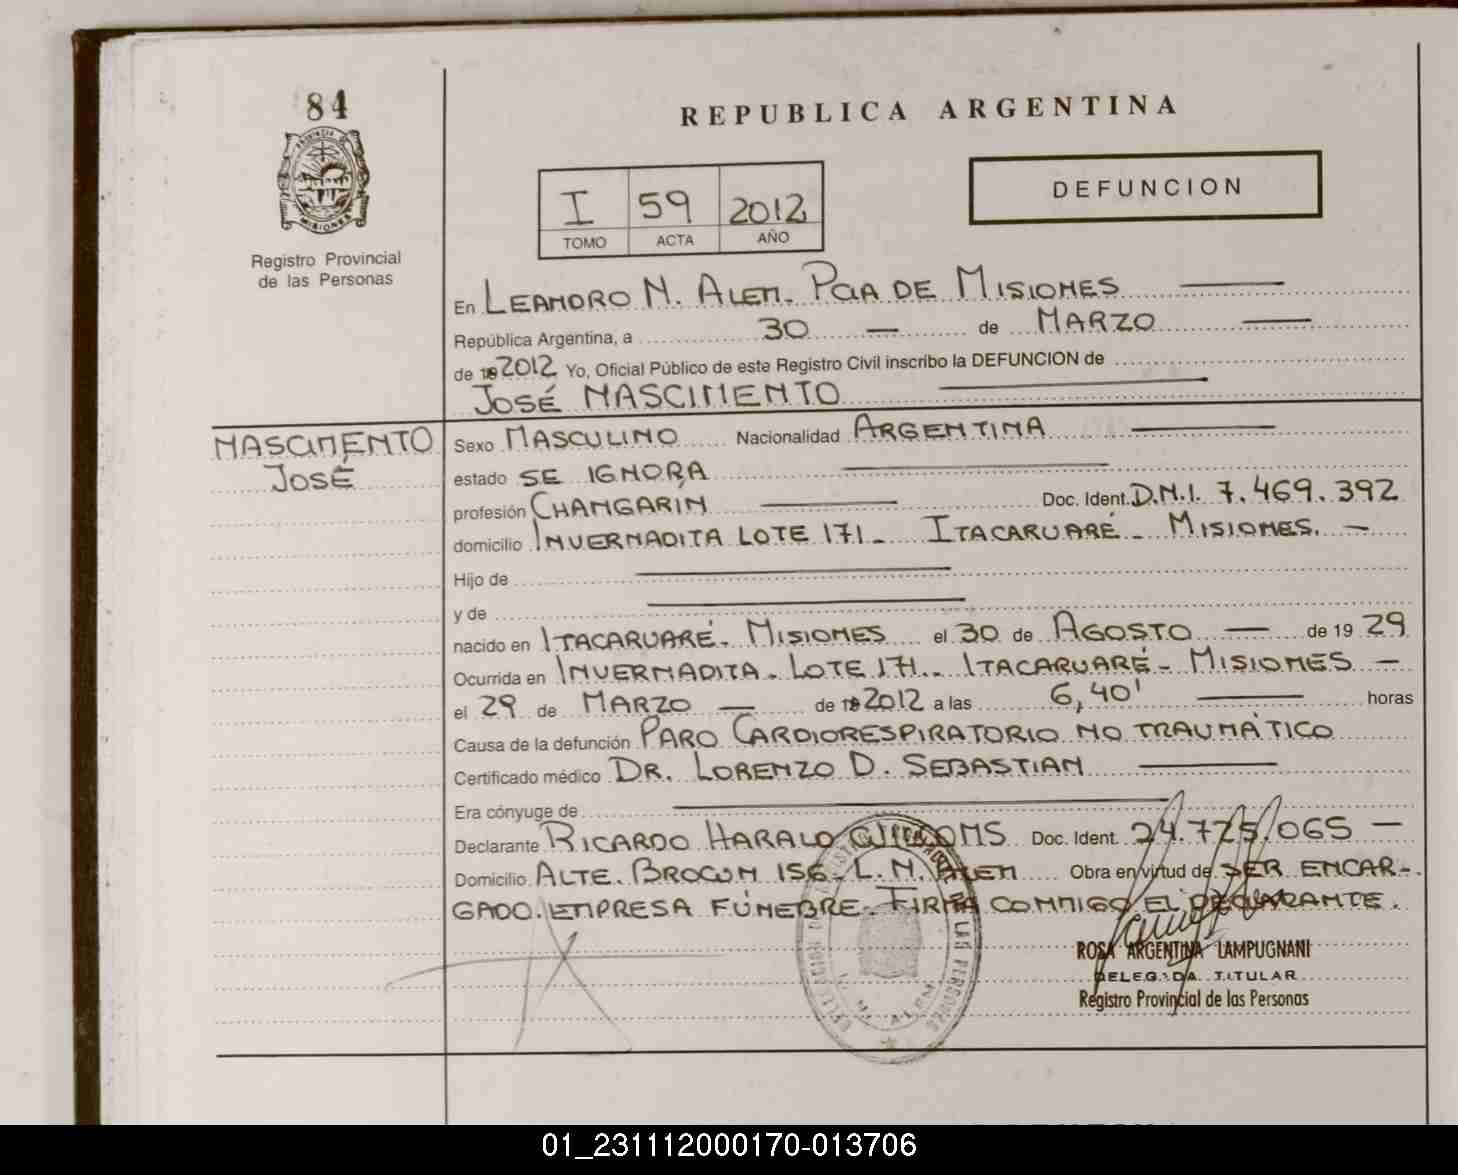 84
PROVINCIA DE
MISIONES
Registro Provincial
de las Personas
REPUBLICA ARGENTINA
I 59 2012
TOMO ACTA AÑO
DEFUNCION
En LEANDRO N. ALEM. PCIA DE MISIONES
República Argentina, a 30 de MARZO
de 19 2012 Yo, Oficial Público de este Registro Civil inscribo la DEFUNCION de
JOSÉ NASCIMENTO
NASCIMENTO
JOSÉ
Sexo MASCULINO Nacionalidad ARGENTINA
estado SE IGNORA
profesión CHANGARÍN Doc. Ident. D.N.I. 7.469.392
domicilio INVERNADITA LOTE 171 - ITACARUARÉ - MISIONES. -
Hijo de
y de
nacido en ITACARUARÉ - MISIONES el 30 de AGOSTO - de 19 29
Ocurrida en INVERNADITA - LOTE 171 - ITACARUARÉ - MISIONES -
el 29 de MARZO - de 19 2012 a las 6,40' horas
Causa de la defunción PARO CARDIORESPIRATORIO NO TRAUMÁTICO
Certificado médico DR. LORENZO D. SEBASTIAN
Era cónyuge de
Declarante RICARDO HARALD Doc. Ident. 24.725.065 -
Domicilio ALTE. BROWN 156 - L. N. ALEM Obra en virtud de SER ENCAR-
GADO. EMPRESA FÚNEBRE - FIRMA CONMIGO EL DECLARANTE.
ROSA ARGENTINA LAMPUGNANI
DELEGADA TITULAR
Registro Provincial de las Personas
DE LAS PERSONAS
L. N. ALEM
01_231112000170-013706